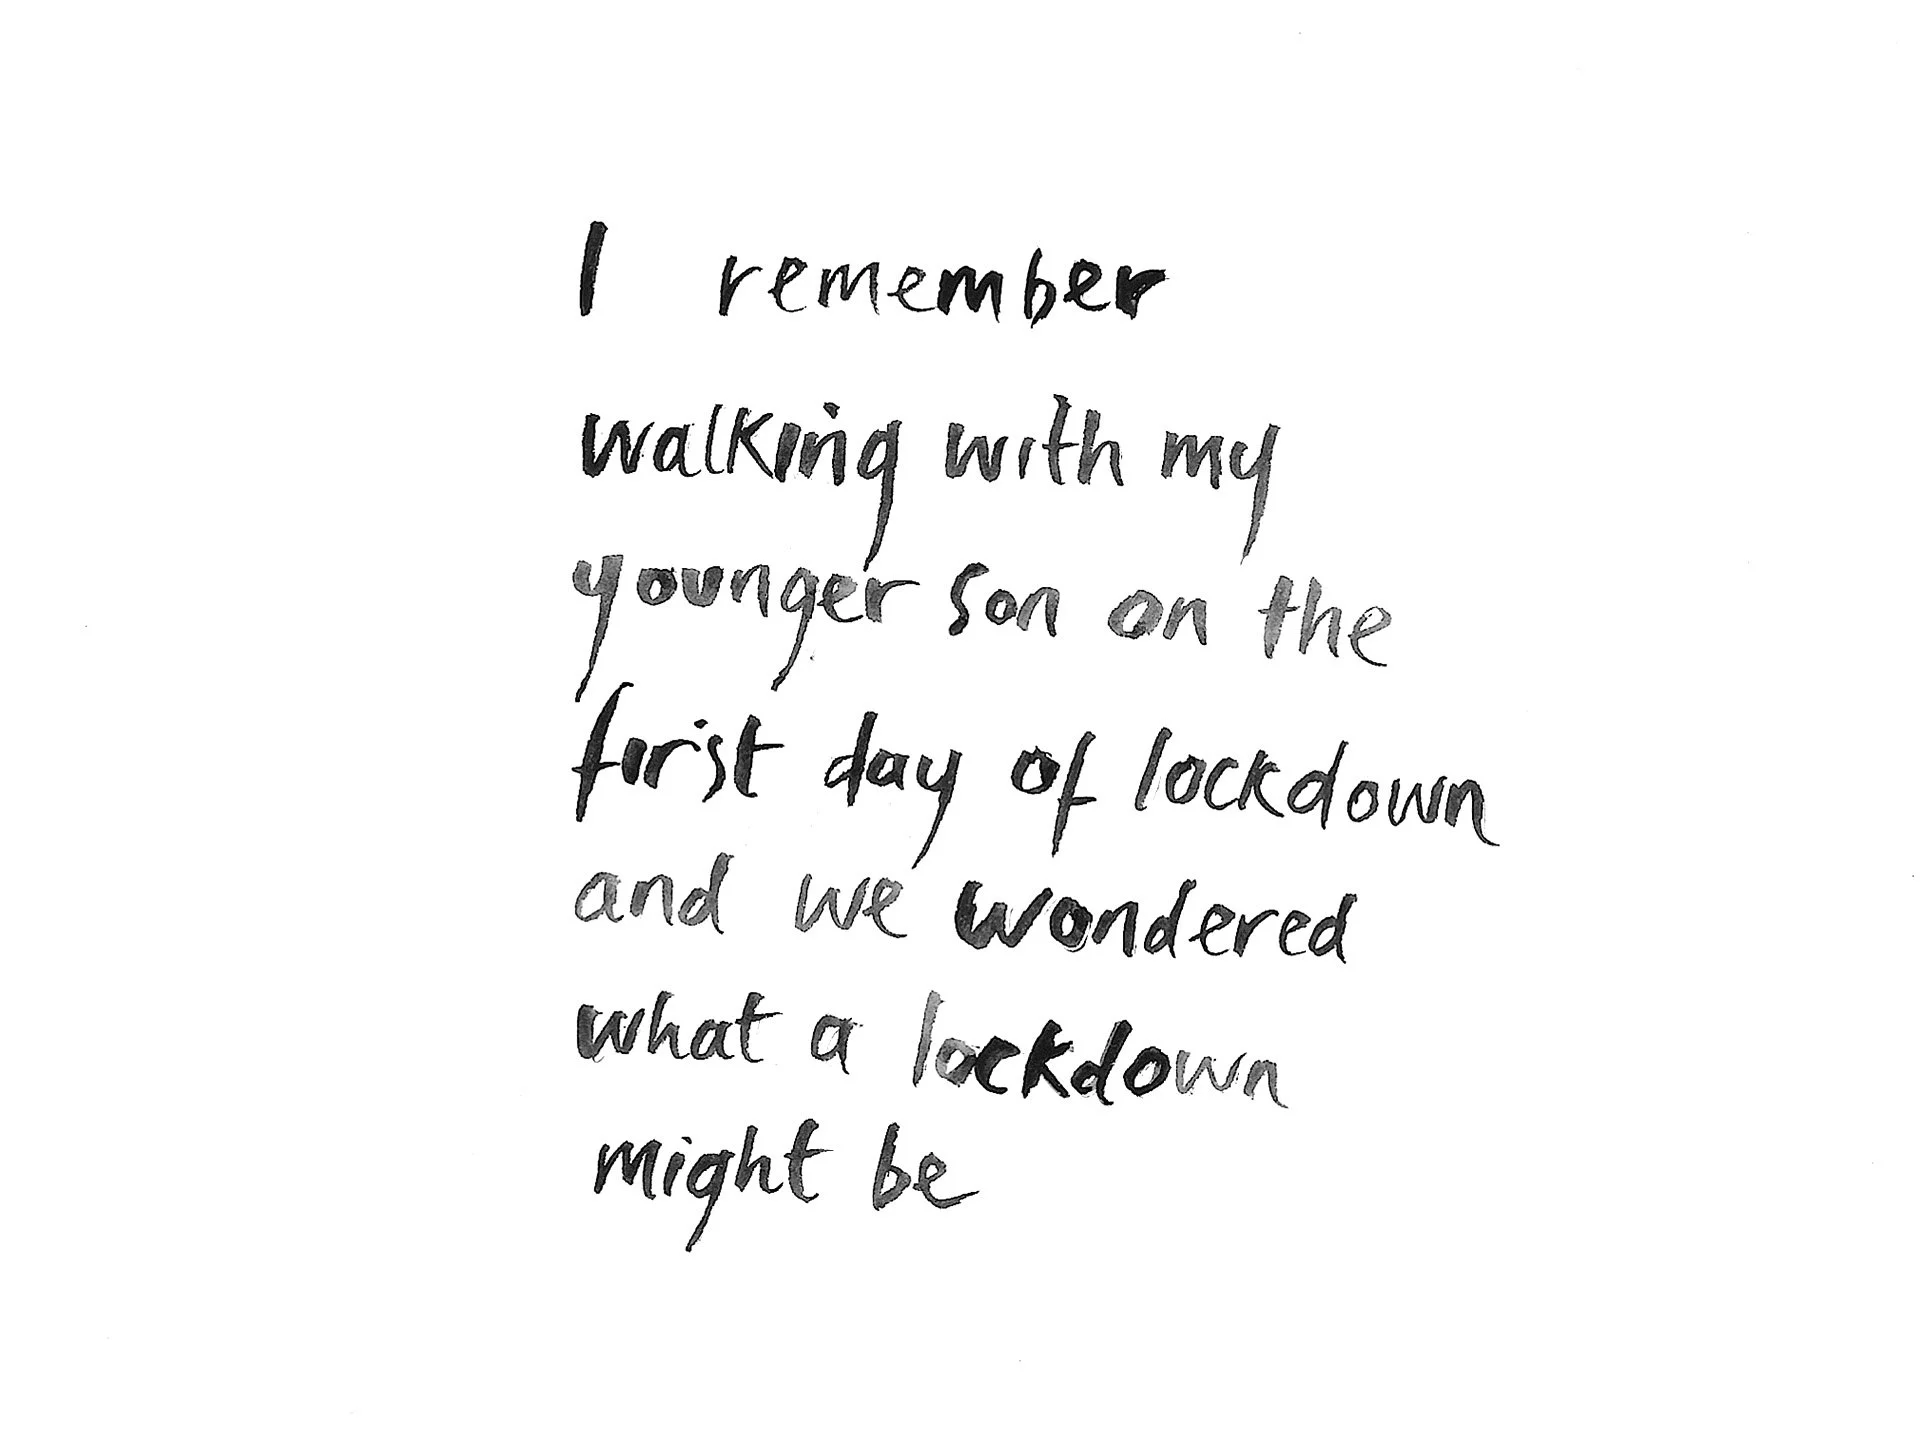 I remember
walking with my
younger son on the
first day of lockdown
and we wondered
what a lockdown
might be